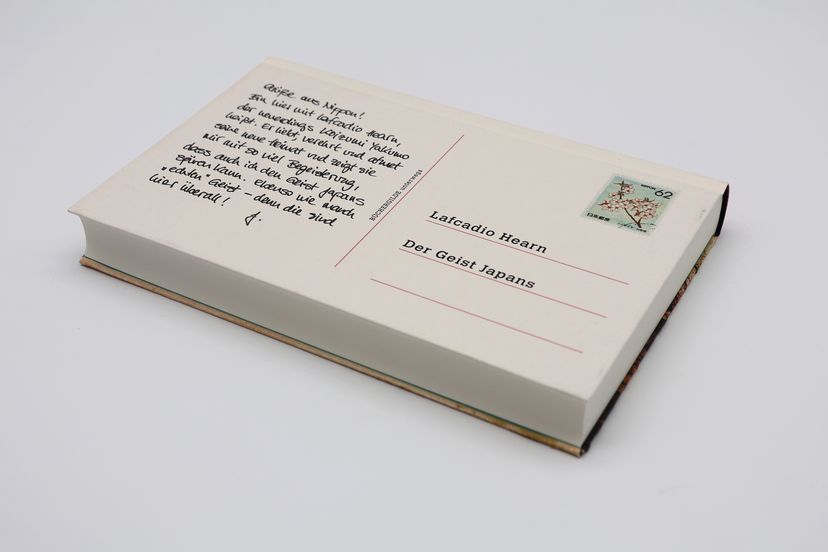 Grüße aus Nippon!
Bin hier mit Lafcadio Hearn,
der neuerdings Koizumi Yakumo
heißt. Er liebt, verehrt und atmet
seine neue Heimat und zeigt sie
mir mit so viel Begeisterung,
dass auch ich den Geist Japans
spüren kann. Ebenso wie manch
„echten" Geist – denn die sind
hier überall!
J.
BÜCHERGILDE unterwegs
NIPPON 62
日本郵便
Lafcadio Hearn
Der Geist Japans